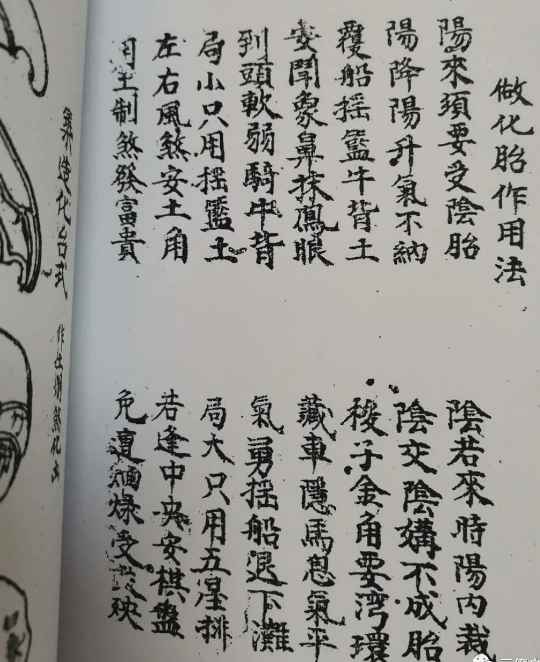 做化胎作用法
陽來須要受陰胎
陰若來時陽內裁
陽降陽升氣不納
陰交陰媾不成胎
覆船摇籃牛背土
梭子金角要湾環
聞象鼻抹鳳眼
藏車隱馬息氣平
到頭軟弱騎牛背
氣勇摇船退下灘
局小只用摇籃土
局大只用五星排
左右風煞安土角
若逢中央安棋盤
用土制煞發富貴
免遭燥受殃
造化台式
作煞化